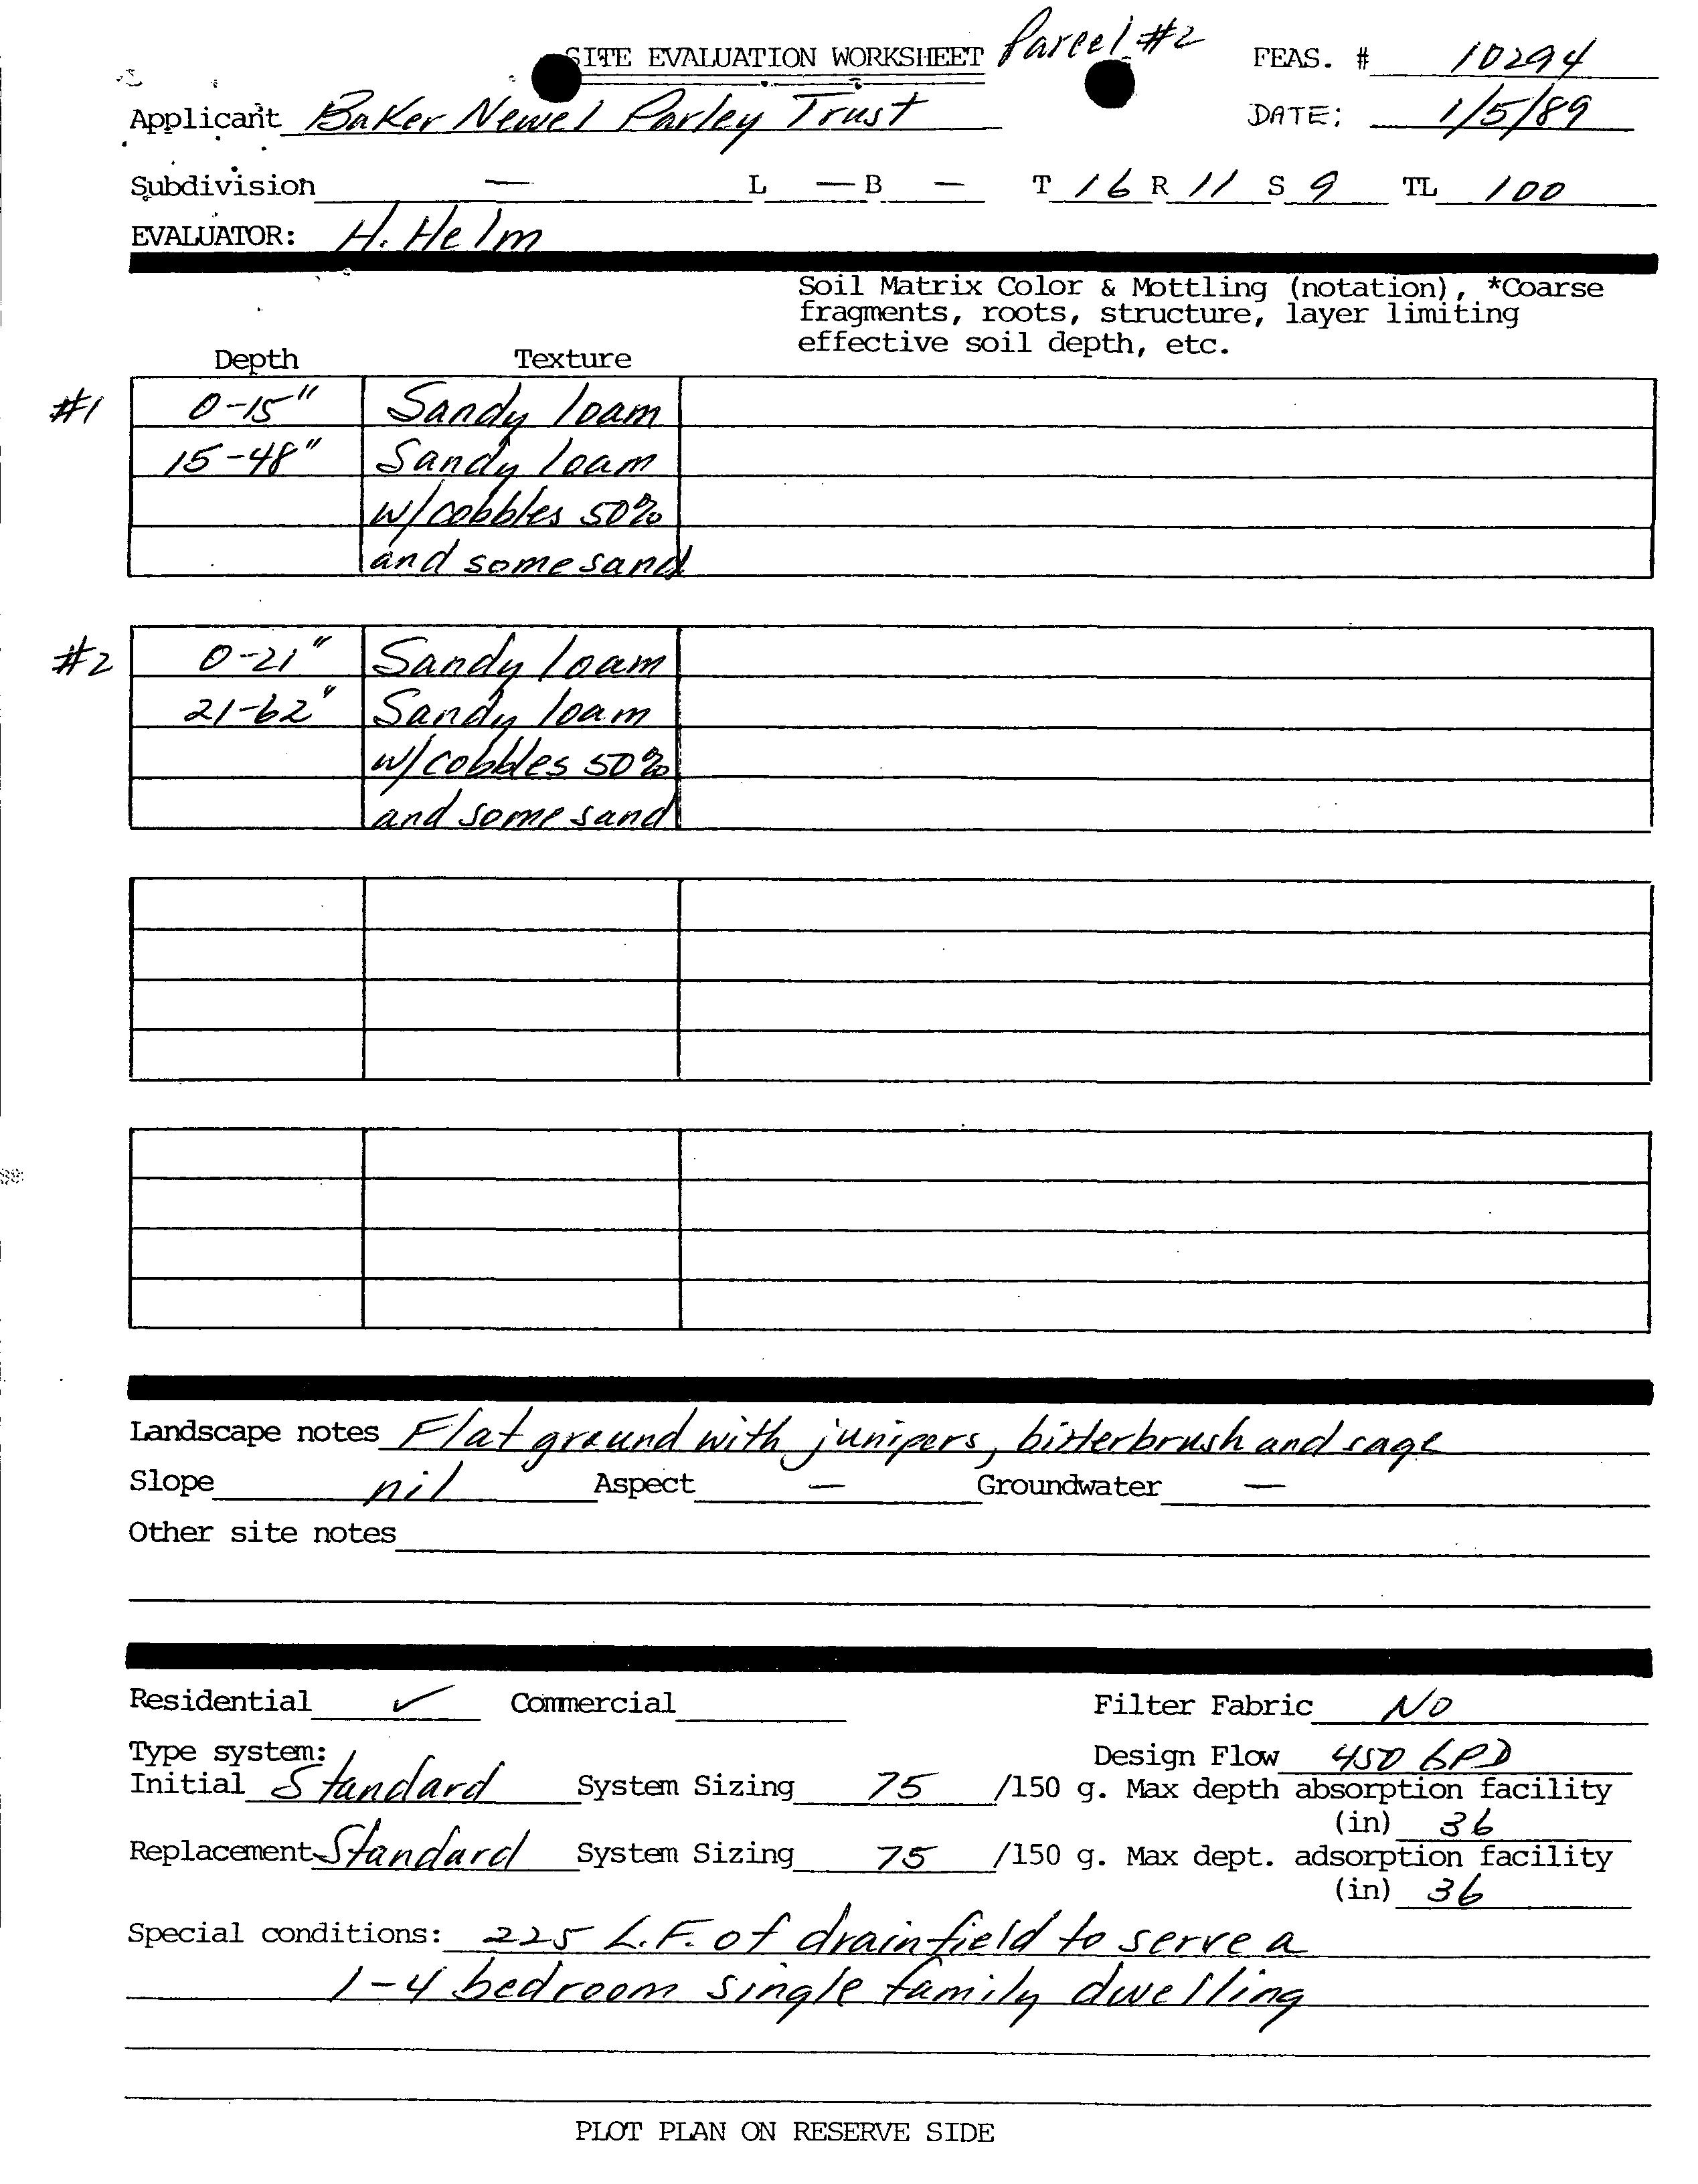 SITE EVALUATION WORKSHEET Parcel #2 FEAS. # 10294
Applicant Baker Newel Parley Trust DATE: 1/5/89
Subdivision — L — B — T 16 R 11 S 9 TL 100
EVALUATOR: H. Helm
Soil Matrix Color & Mottling (notation), *Coarse
fragments, roots, structure, layer limiting
effective soil depth, etc.
Depth Texture
#1 0-15" Sandy loam
15-48" Sandy loam
w/cobbles 50%
and some sand
#2 0-21" Sandy loam
21-62" Sandy loam
w/cobbles 50%
and some sand
Landscape notes Flat ground with junipers, bitterbrush and sage
Slope nil Aspect — Groundwater —
Other site notes
Residential ✓ Commercial Filter Fabric No
Type system: Design Flow 450 GPD
Initial Standard System Sizing 75 /150 g. Max depth absorption facility
(in) 36
Replacement Standard System Sizing 75 /150 g. Max dept. adsorption facility
(in) 36
Special conditions: 225 L.F. of drainfield to serve a
1-4 bedroom single family dwelling
PLOT PLAN ON RESERVE SIDE